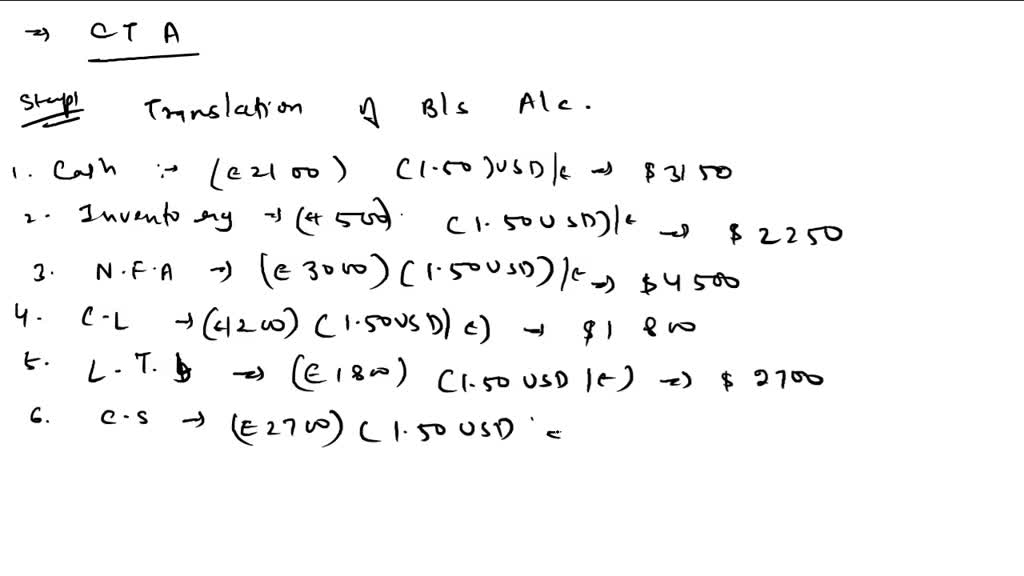 → C T A
Step1 Translation of B/s A/c.
1. Cash :→ (€2100) (1.50)USD/€ → $3150
2. Inventory → (€1500) (1.50USD)/€ → $2250
3. N.F.A → (€3000) (1.50USD)/€ → $4500
4. C-L → (€1200) (1.50USD/€) → $1800
5. L.T. → (€1800) (1.50 USD/€) → $2700
6. C.S → (€2700) (1.50USD €